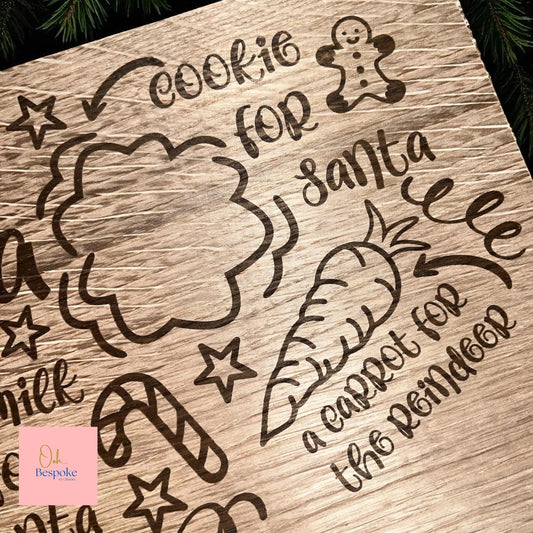 cookie
for
santa
a carrot for
the reindeer
milk
Ooh
Bespoke